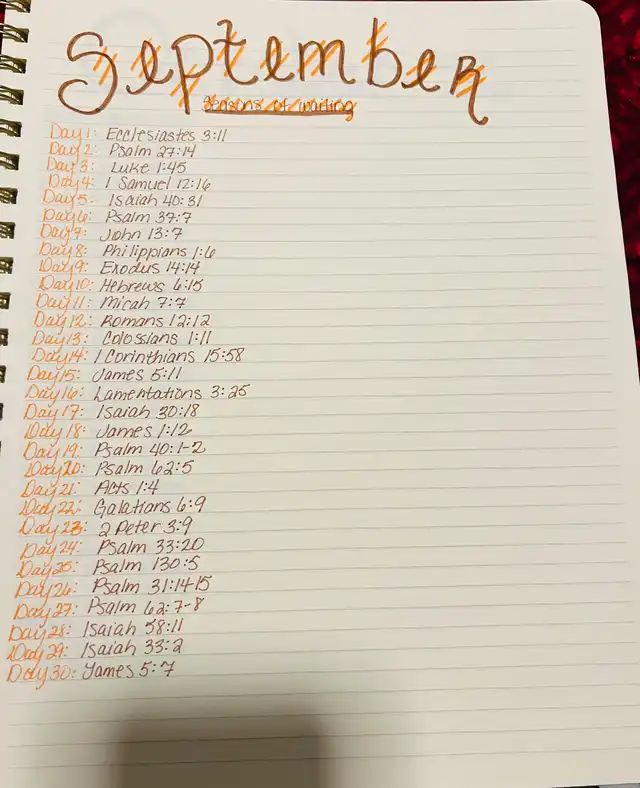 September
Seasons of waiting
Day 1: Ecclesiastes 3:11
Day 2: Psalm 27:14
Day 3: Luke 1:45
Day 4: 1 Samuel 12:16
Day 5: Isaiah 40:31
Day 6: Psalm 37:7
Day 7: John 13:7
Day 8: Philippians 1:6
Day 9: Exodus 14:14
Day 10: Hebrews 6:15
Day 11: Micah 7:7
Day 12: Romans 12:12
Day 13: Colossians 1:11
Day 14: 1 Corinthians 15:58
Day 15: James 5:11
Day 16: Lamentations 3:25
Day 17: Isaiah 30:18
Day 18: James 1:12
Day 19: Psalm 40:1-2
Day 20: Psalm 62:5
Day 21: Acts 1:4
Day 22: Galatians 6:9
Day 23: 2 Peter 3:9
Day 24: Psalm 33:20
Day 25: Psalm 130:5
Day 26: Psalm 31:14-15
Day 27: Psalm 62:7-8
Day 28: Isaiah 58:11
Day 29: Isaiah 33:2
Day 30: James 5:7